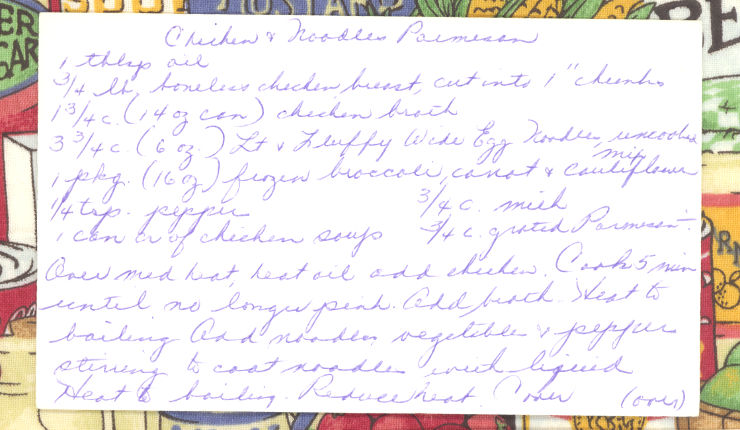 Chicken & Noodles Parmesan
1 tblsp oil
3/4 lb. boneless chicken breast, cut into 1" chunks
1 3/4 c. (14 oz can) chicken broth
3 3/4 c. (6 oz.) Lt & Fluffy Wide Egg Noodles, uncooked
1 pkg. (16 oz) frozen broccoli, carrot & cauliflower mix
1/4 tsp. pepper 3/4 c. milk
1 can cr of chicken soup 3/4 c. grated Parmesan
Over med heat, heat oil add chicken. Cook 5 min
until no longer pink. Add broth. Heat to
boiling Add noodles, vegetables & pepper
stirring to coat noodles with liquid
Heat to boiling. Reduce heat. Cover (over)